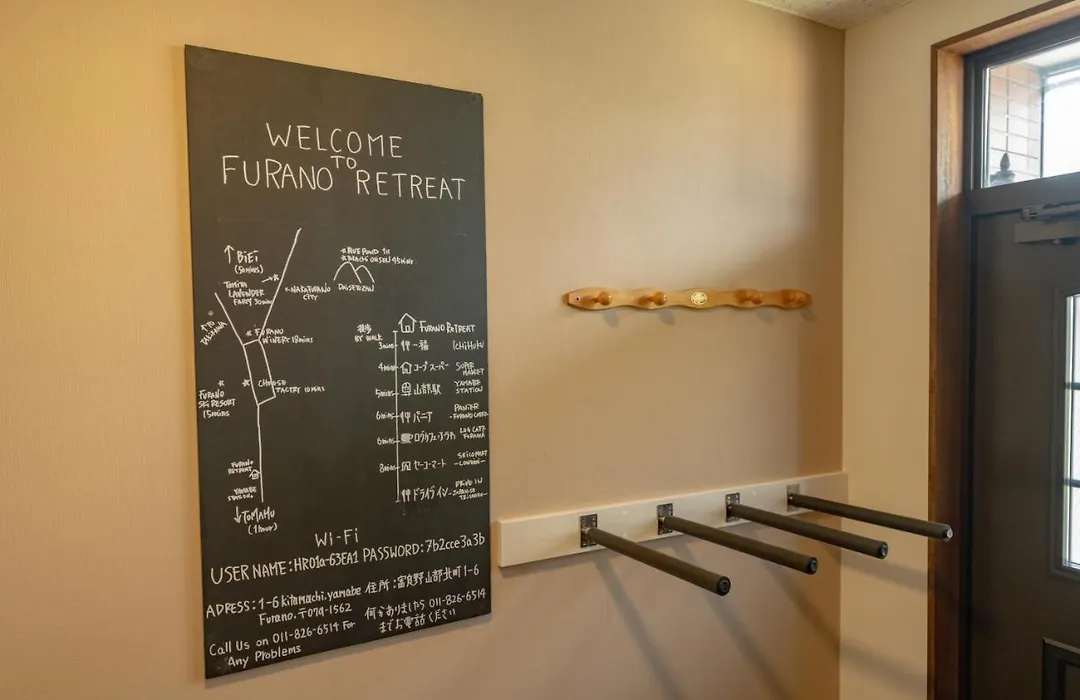 WELCOME
TO
FURANO RETREAT
↑ BiEi
(50mins)
TOMITA
LAVENDER
FARM 30mins
NAKAFURANO
CITY
BLUE POND 1H
45mins
DAISETSUZAN
FURANO
WINERY 18mins
FURANO
SKI RESORT
15mins
CHEESE
FACTORY 10mins
FURANO
RETREAT
YAMABE
STATION
↓TOMAMU
(1hour)
徒歩
BY WALK
FURANO RETREAT
3mins 一福 ICHIFUKU
4mins コープスーパー SUPER
MARKET
5mins 山部駅 YAMABE
STATION
6mins パニア PANIER
FURANO CAFE
6mins ログカフェ・ふらわ LOG CAFE
8mins セーコーマート SEICOMART
ドライブイン DRIVE IN
Wi-Fi
USER NAME:HR01a-63EA1 PASSWORD:7b2cce3a3b
ADRESS:1-6 kitamachi,yamabe 住所:富良野山部北町1-6
Furano,〒079-1562
何かありましたら 011-826-6514
までお電話ください
Call Us on 011-826-6514 For
Any Problems